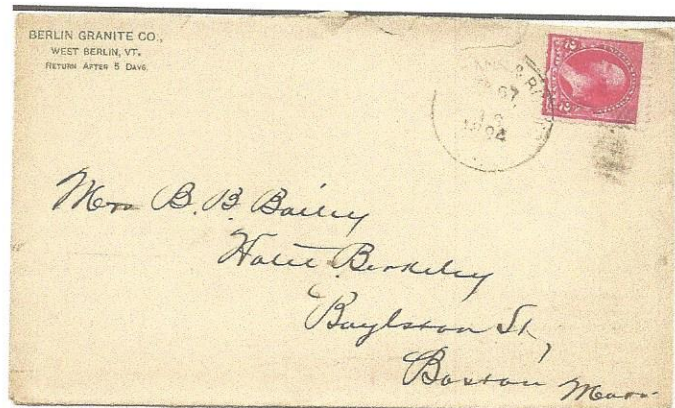 BERLIN GRANITE CO.,
WEST BERLIN, VT.
RETURN AFTER 5 DAYS.
2 2
1894
Mrs B. B. Bailey
Hotel Berkeley
Boylston St,
Boston Mass.